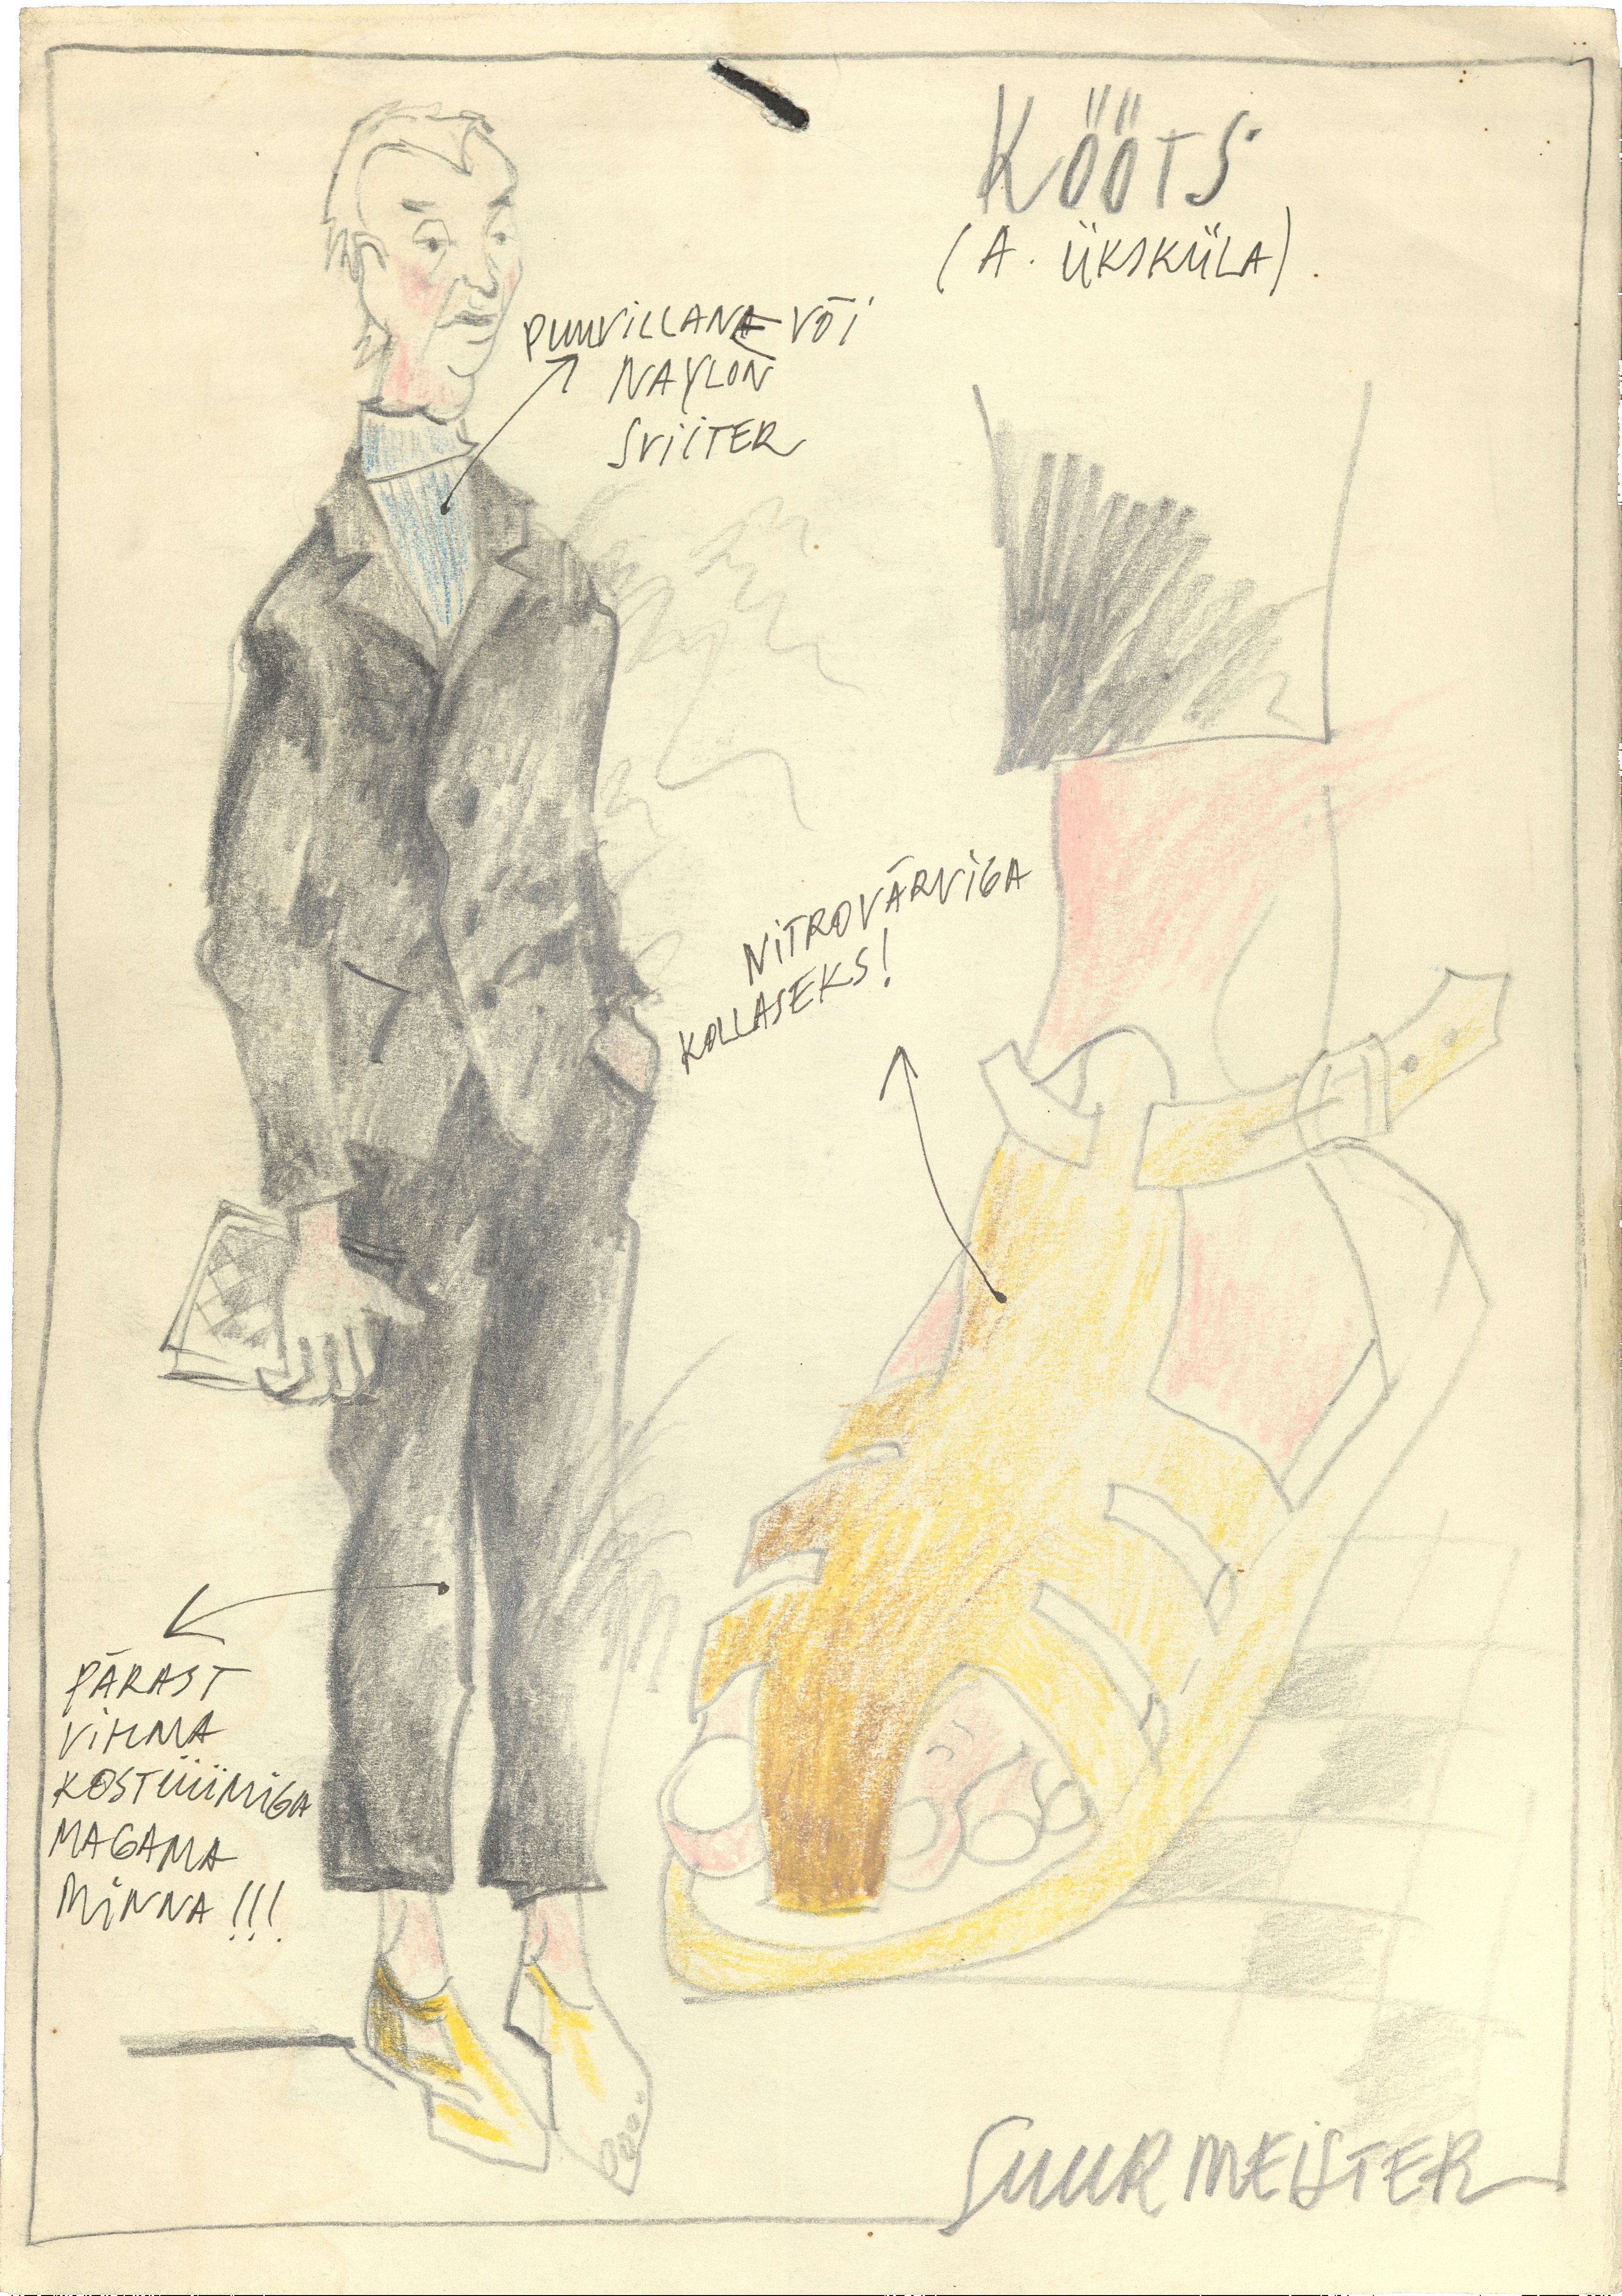 KÖÖTS
(A. ÜKSKÜLA).
PUUVILLANE VÕI
NAYLON
SVIITER
NITROVÄRVIGA
KOLLASEKS!
PÄRAST
VIHMA
KOSTÜÜMIGA
MAGAMA
MINNA!!!
SUURMEISTER